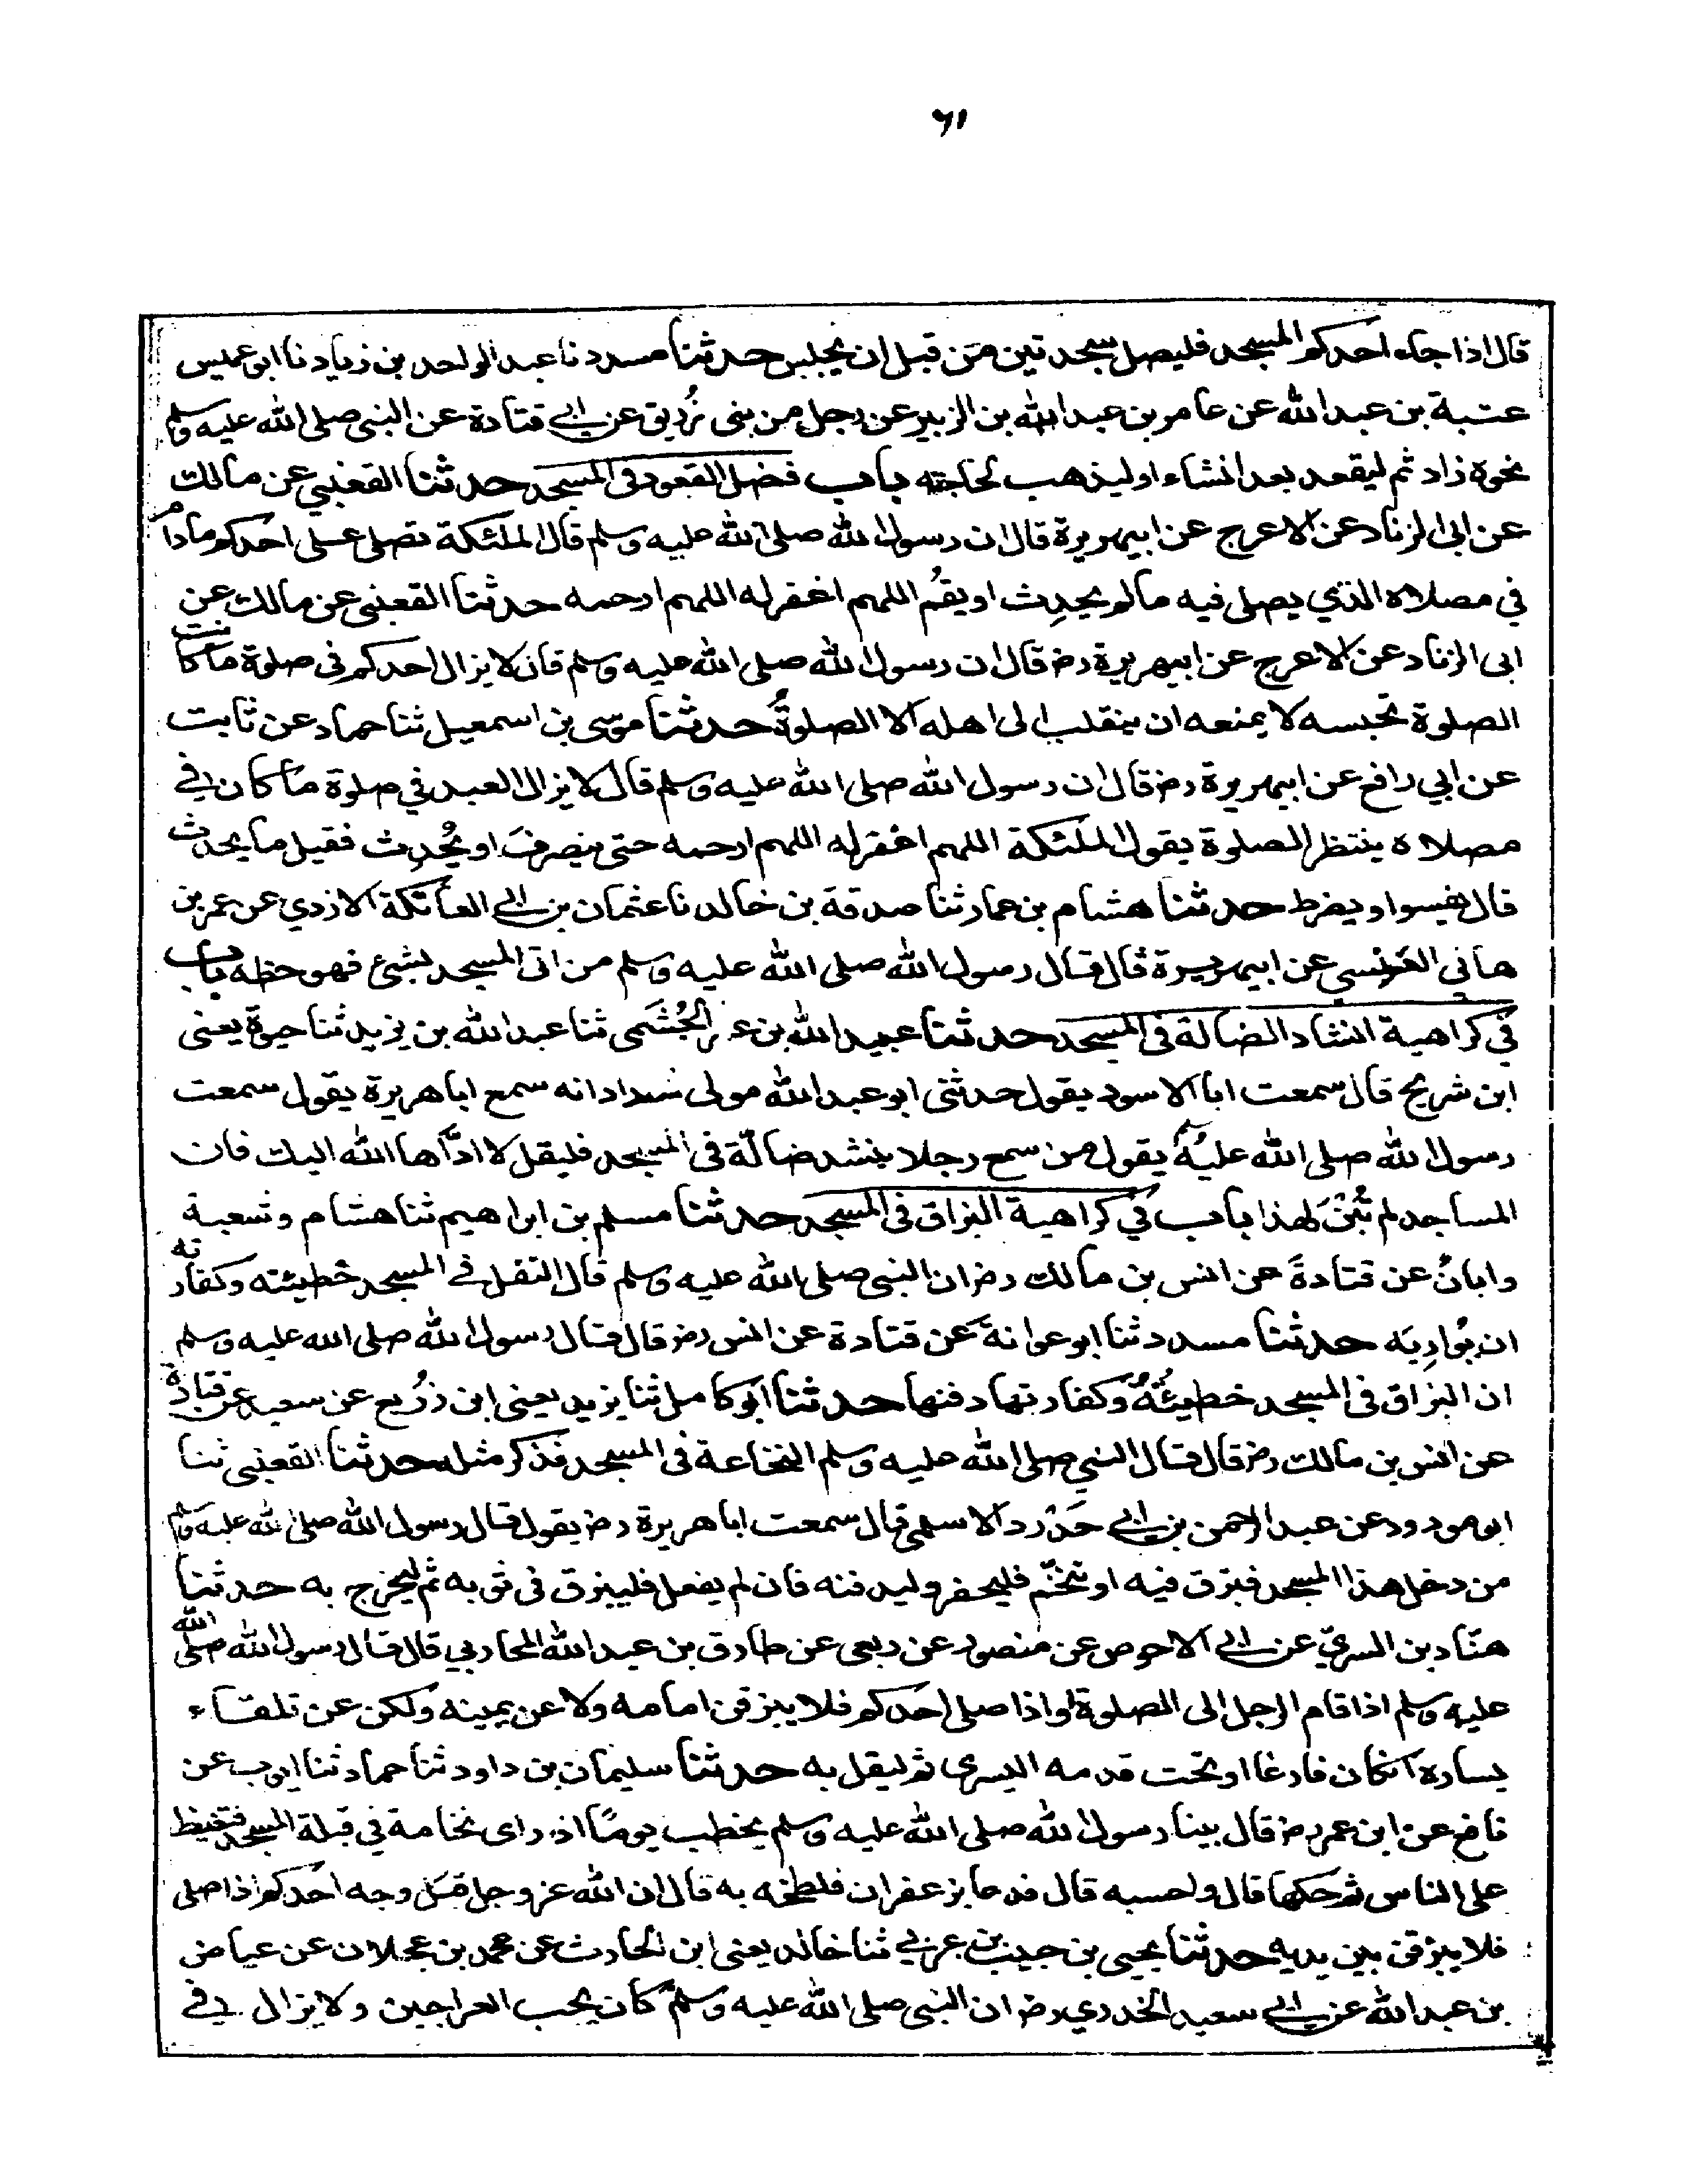 ٦١
قال اذا جاء احدكم المسجد فليصل سجدتين من قبل ان يجلس حدثنا مسدد نا عبد الواحد بن زياد نا ابو عميس
عتبة بن عبد الله عن عامر بن عبد الله بن الزبير عن رجل من بنى زُريق عن ابي قتادة عن النبى صلى الله عليه وسلم
نحوة زاد ثم ليقعد بعد انشاء او ليذهب لحاجته باب فضل القعود فى المسجد حدثنا القعنبي عن مالك
عن ابى الزناد عن الاعرج عن ابيهريرة قال ان رسول الله صلى الله عليه وسلم قال الملئكة تصلى على احدكم مادام
في مصلاه الذي يصلى فيه مالم يحدِث او يقُم اللهم اغفر له اللهم ارحمه حدثنا القعنبى عن مالك عن
ابى الزناد عن الاعرج عن ابيهريرة رض قال ان رسول الله صلى الله عليه وسلم قال لا يزال احدكم فى صلوة ما كانت
الصلوة تحبسه لا يمنعه ان ينقلب الى اهله الا الصلوةُ حدثنا موسى بن اسمعيل ثنا حماد عن ثابت
عن ابي رافع عن ابيهريرة رض قال ان رسول الله صلى الله عليه وسلم قال لا يزال العبد في صلوة ما كان في
مصلاه ينتظر الصلوة يقول الملئكة اللهم اغفر له اللهم ارحمه حتى ينصرفَ او يُحْدِث فقيل ما يحدث
قال يفسو او يضرط حدثنا هشام بن عمار ثنا صدقة بن خالد نا عثمان بن ابي العاتكة الازدي عن عمر بن
هاني العَنْسي عن ابيهريرة قال قال رسول الله صلى الله عليه وسلم من اتى المسجد لشئ فهو حظه باب
في كراهية انشاد الضالة فى المسجد حدثنا عبيد الله بن عمر الجُشَمى ثنا عبد الله بن يزيد ثنا حيوة يعنى
ابن شريح قال سمعت ابا الاسود يقول حدثنى ابو عبد الله مولى شداد انه سمع ابا هريرة يقول سمعت
رسول الله صلى الله عليه وسلم يقول من سمع رجلا ينشد ضالّة فى المسجد فليقل لا ادّاها الله اليك فان
المساجد لم تُبْنَ لهذا باب في كراهية البزاق فى المسجد حدثنا مسلم بن ابراهيم ثنا هشام وشعبة
وابانُ عن قتادةَ عن انس بن مالك رض ان النبى صلى الله عليه وسلم قال التفل في المسجد خطيئته وكفارته
ان يُوارِيَه حدثنا مسدد ثنا ابو عوانةَ عن قتادة عن انس رض قال قال رسول الله صلى الله عليه وسلم
ان البزاق فى المسجد خطيئةٌ وكفارتها دفنها حدثنا ابو كامل ثنا يزيد يعنى ابن زُريع عن سعيد عن قتادة
عن انس بن مالك رض قال قال النبي صلى الله عليه وسلم النخاعة فى المسجد فذكر مثله حدثنا القعنبى ثنا
ابو مودود عن عبد الرحمن بن ابي حَدْرد الاسلمى قال سمعت ابا هريرة رض يقول قال رسول الله صلى الله عليه وسلم
من دخل هذا المسجد فبزق فيه او تنخّم فليحفر وليدفنه فان لم يفعل فليبزق فى ثوبه ثم ليخرج به حدثنا
هنّاد بن السريّ عن ابي الاحوص عن منصور عن ربعى عن طارق بن عبد الله المحاربي قال قال رسول الله صلى الله
عليه وسلم اذا قام الرجل الى الصلوة او اذا صلى احدكم فلا يبزقن امامه ولا عن يمينه ولكن عن تلقاء
يساره ان كان فارغا او تحت قدمه اليسرى ثم ليقل به حدثنا سليمان بن داود ثنا حماد ثنا ايوب عن
نافع عن ابن عمر رض قال بينا رسول الله صلى الله عليه وسلم يخطب يومًا اذ راى نخامة في قبلة المسجد فتغيظ
على الناس ثم حكها قال واحسبه قال فدعا بزعفران فلطخه به قال ان الله عز وجل قِبَل وجه احدكم اذا صلى
فلا يبزقن بين يديه حدثنا يحيى بن حبيب بن عربي ثنا خالد يعنى ابن الحارث عن محمد بن عجلان عن عياض
بن عبد الله عن ابي سعيد الخدري رض ان النبى صلى الله عليه وسلم كان يحب العراجين ولا يزال في